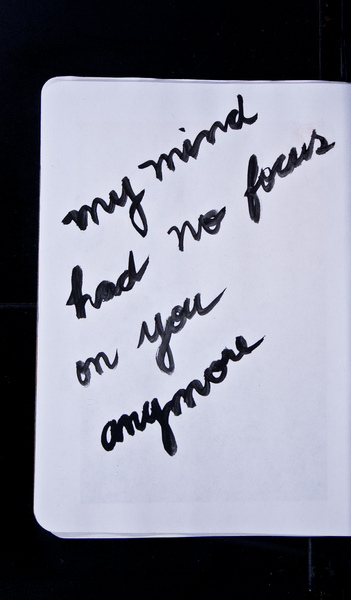 my mind
had no focus
on you
anymore